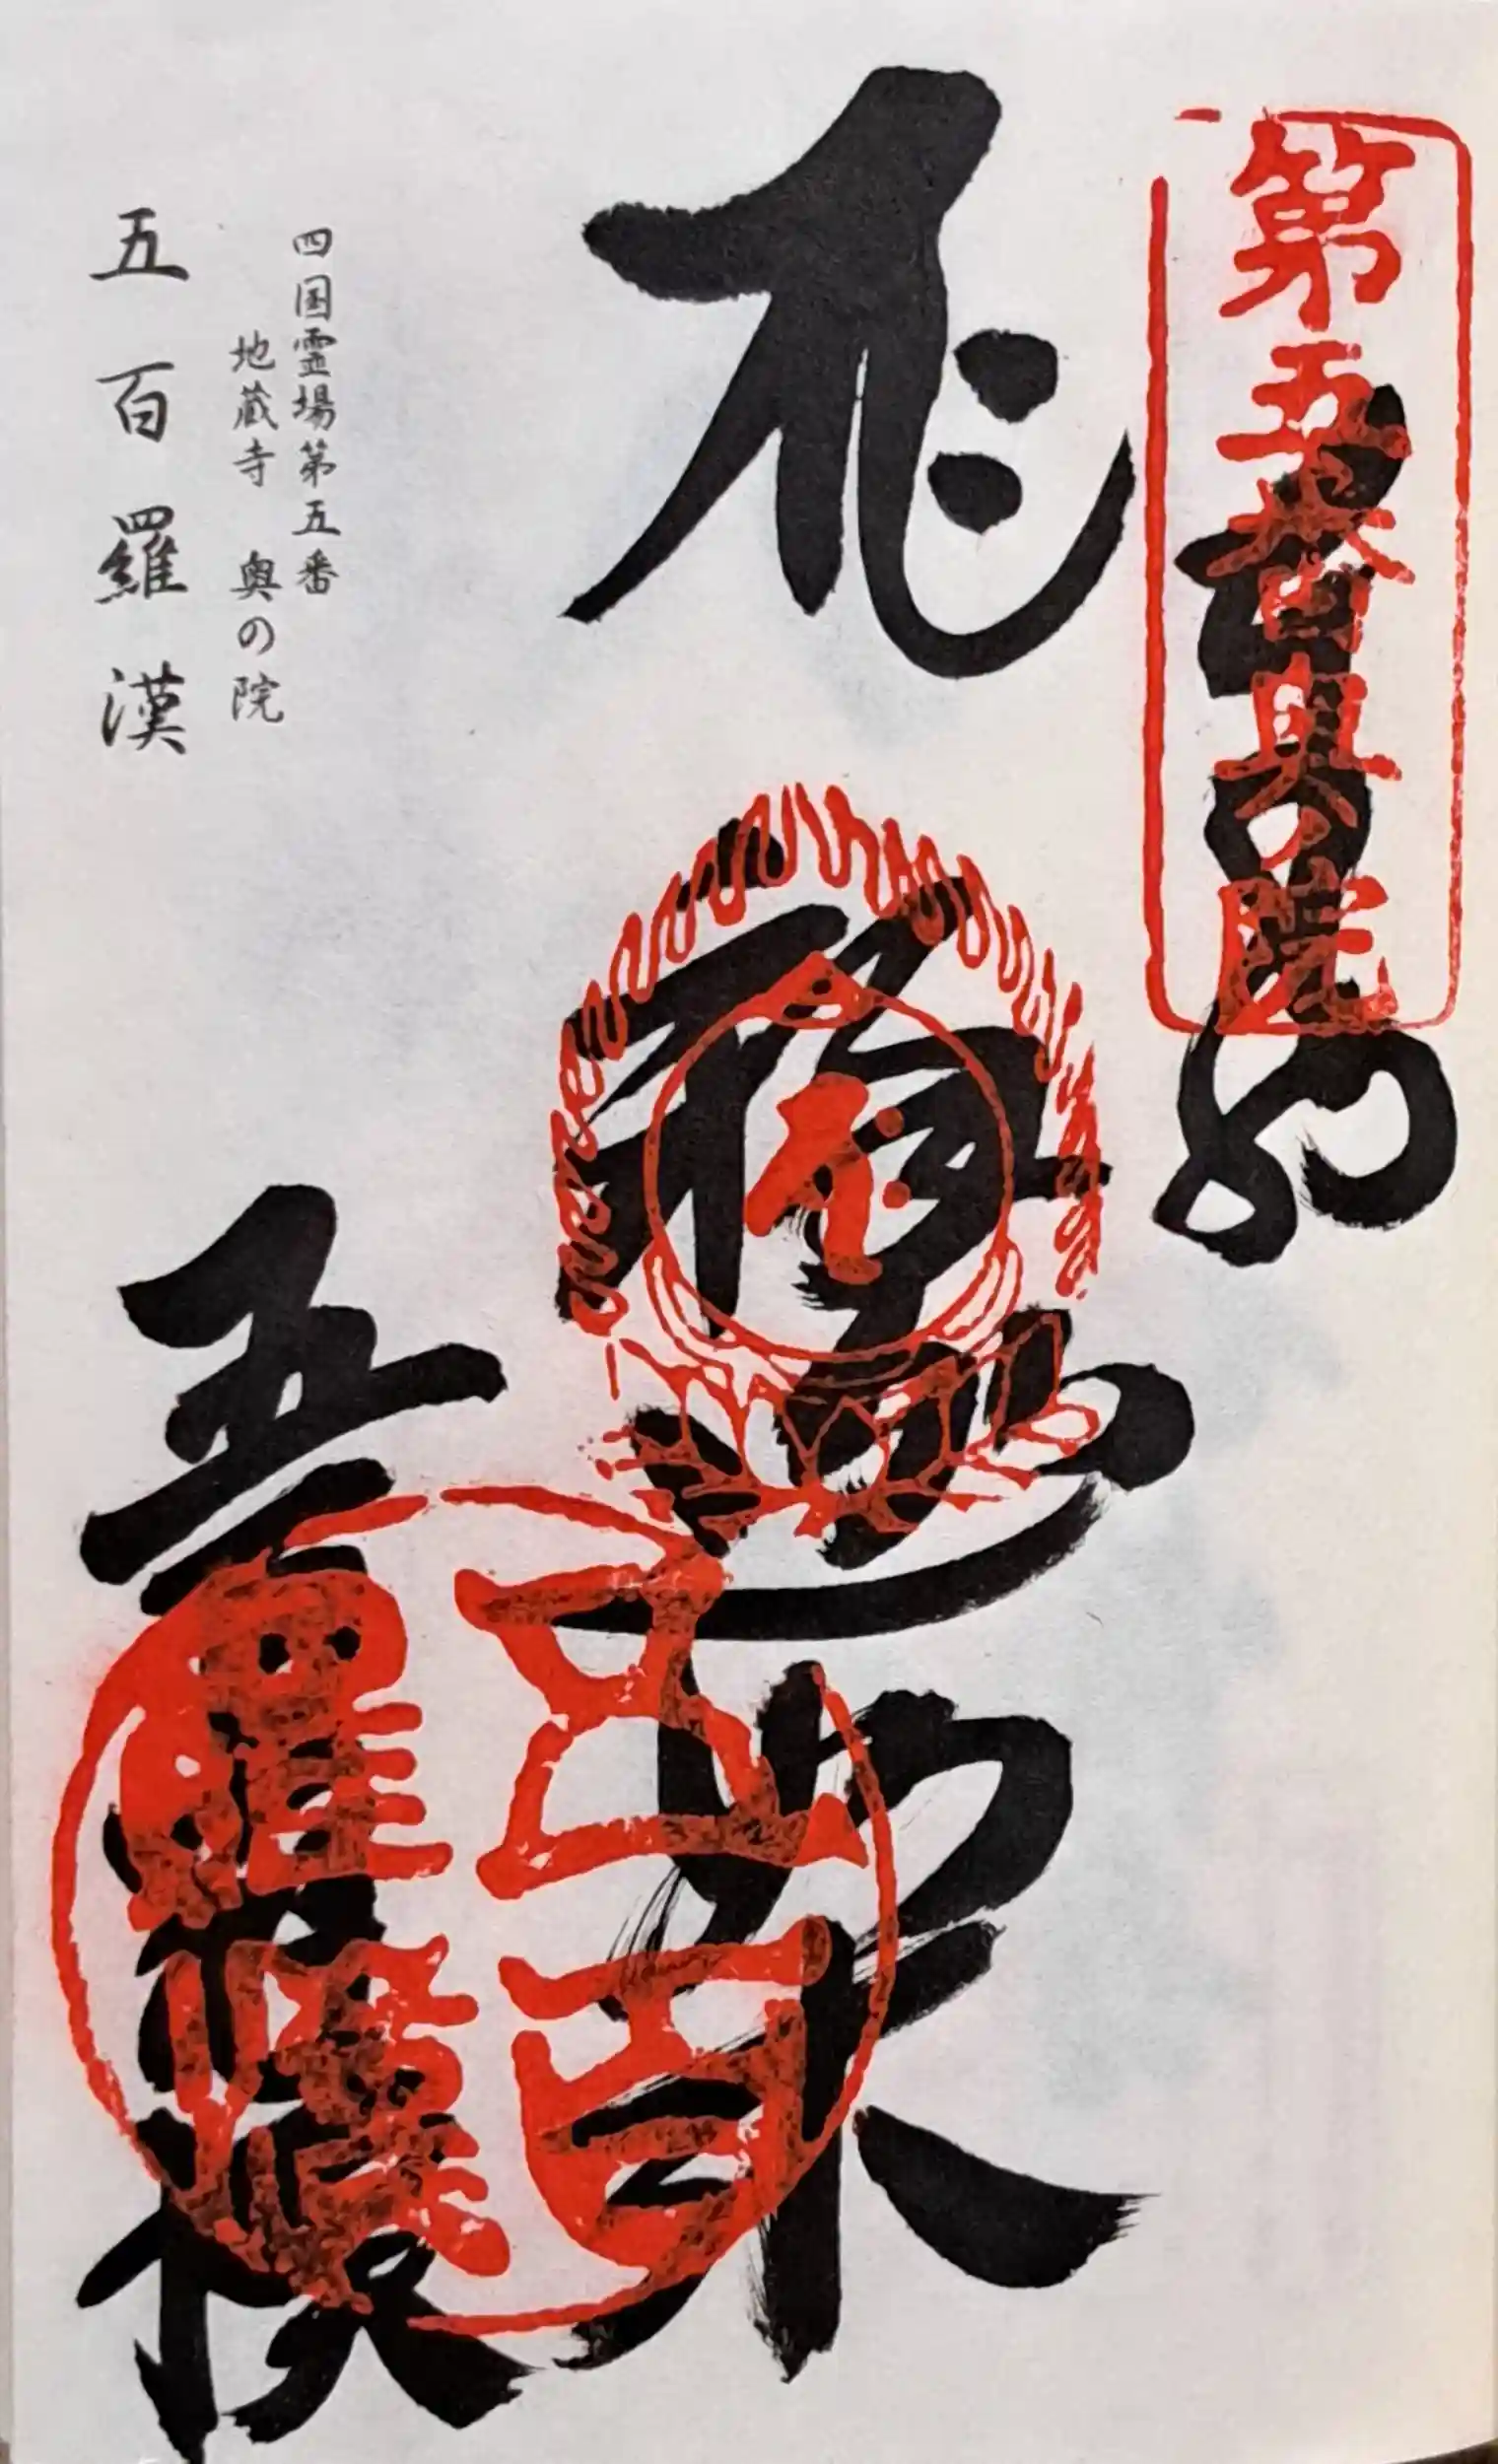 第五番奥院
奉納
भः
釈迦如来
五百羅漢
五百羅漢
四国霊場第五番
地蔵寺 奥の院
五百羅漢